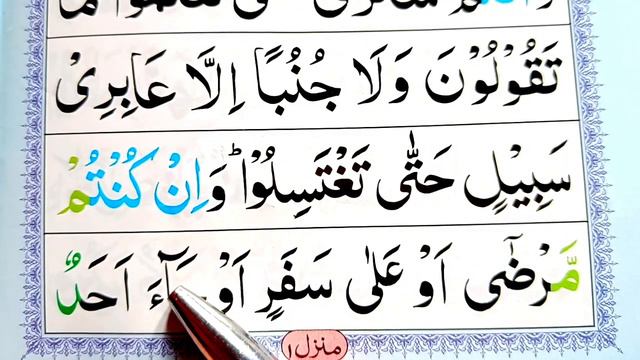 تَقُوْلُوْنَ وَلَا جُنُبًا اِلَّا عَابِرِيْ
سَبِيْلٍ حَتّٰى تَغْتَسِلُوْا ؕ وَاِنْ كُنْتُمْ
مَّرْضٰٓى اَوْ عَلٰى سَفَرٍ اَوْ جَآءَ اَحَدٌ
منزل ١